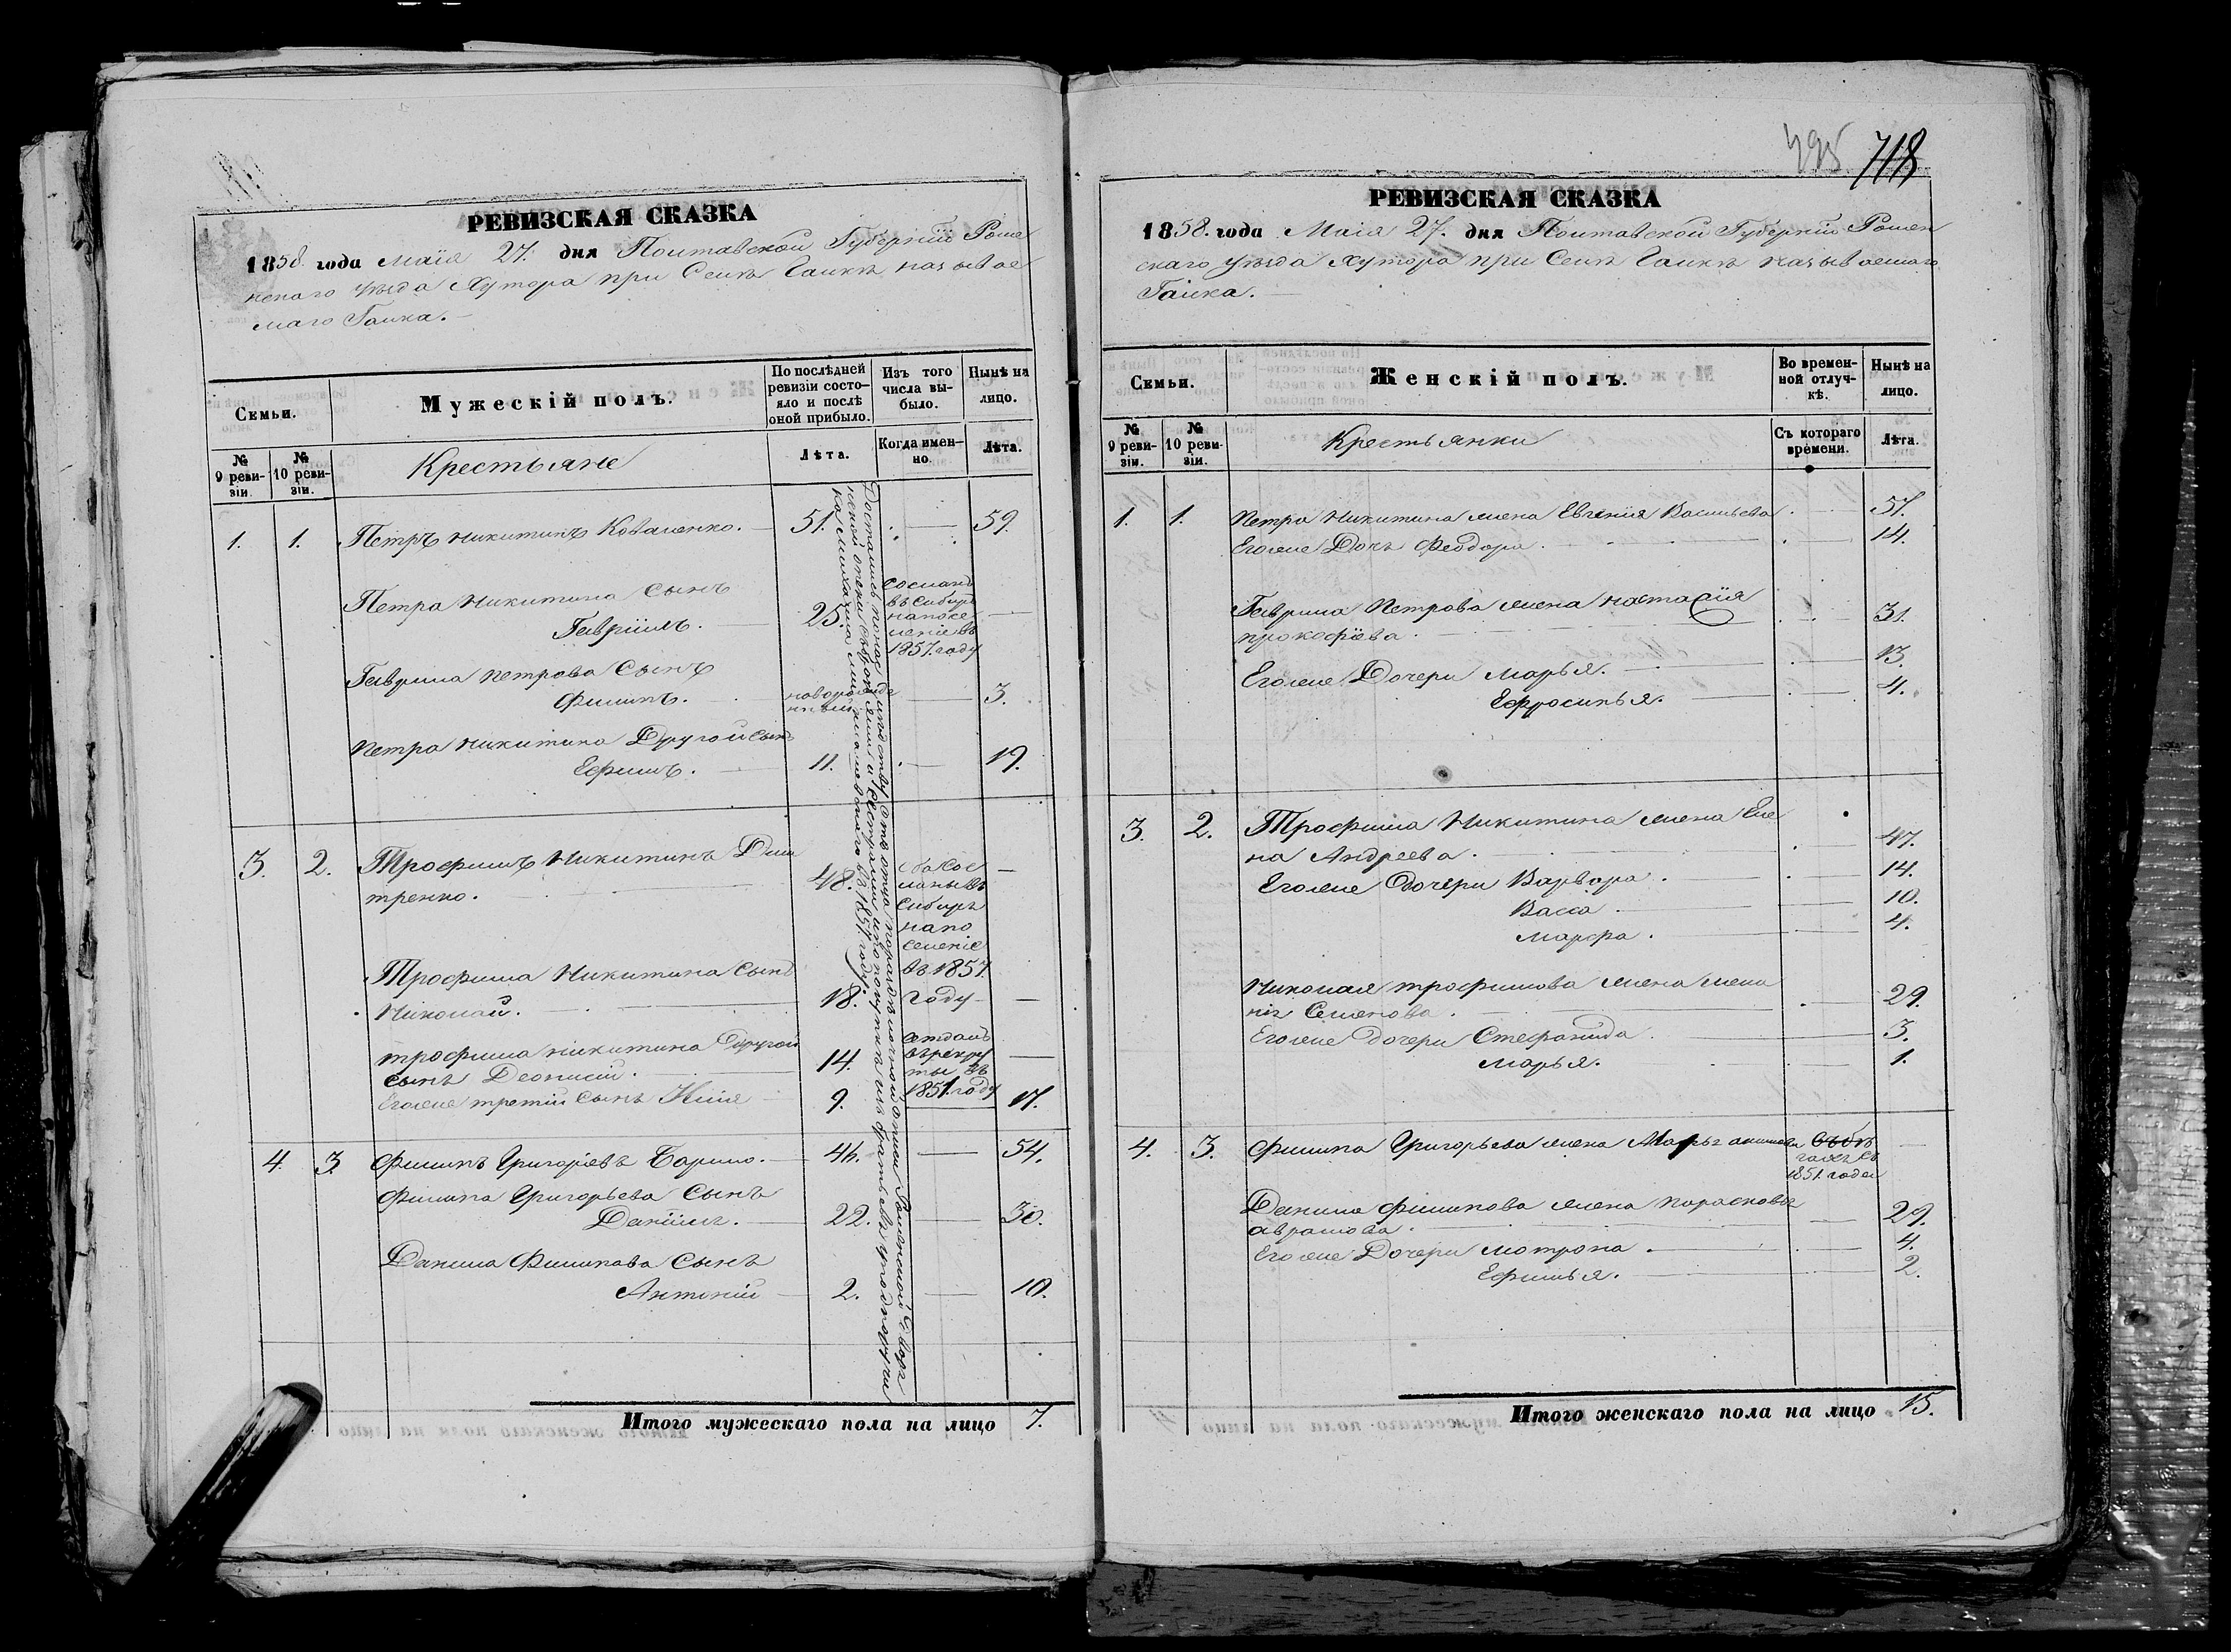 РЕВИЗСКАЯ СКАЗКА
1858. года Маія 27. дня Полтавской Губерніи Роме
нскаго уѣзда Хутора при Селѣ Галкѣ называе
маго Галка.
Семьи.
Мужескій полъ.
По послѣдней
ревизіи состо-
яло и послѣ
оной прибыло.
Изъ того
числа вы-
было.
Нынѣ на
лицо.
№
9 реви-
зіи.
№
10 реви-
зіи.
Крестьяне
Лѣта.
Когда имен-
но.
Лѣта.
1. 1. Петръ Никитинъ Коваленко. 51. 59.
Петра Никитина сынъ
Гавріилъ. 25.
сосланъ
въ Сибирь
на посе
леніе въ
1857. году
Гаврила Петрова Сынъ
Филипъ. новорожде
нный 3.
Петра Никитина Другой сынъ
Ефимъ. 11. 19.
3. 2. Трофимъ Никитинъ Дми
тренко. 48.
оба сос
ланы въ
Сибирь
на по
селеніе
въ 1857.
году
Трофима Никитина сынъ
Николай. 18.
трофима никитина Другой
сынъ Деонисій. 14.
отданъ
въ рекру
ты въ
1851. году
Егоже третій сынъ Илія 9. 17.
4. 3. Филипъ Григорьевъ 46. 54.
Филипа Григорьева Сынъ
Даніилъ. 22. 30.
Данила Филипова Сынъ
Антоній 2. 10.
Итого мужескаго пола на лицо 7.
718
РЕВИЗСКАЯ СКАЗКА
1858. года Маія 27. дня Полтавской Губерніи Ромен
скаго уѣзда Хутора при Селѣ Галкѣ называемаго
Галка.
Семьи.
Женскій полъ.
Во времен-
ной отлуч-
кѣ.
Нынѣ на
лицо.
№
9 реви-
зіи.
№
10 реви-
зіи.
Крестьянки
Съ котораго
времени.
Лѣта.
1. 1. Петра Никитина жена Евгенія Васильева 57.
Егоже Дочь Феодора. 14.
Гаврила Петрова жена настасія
прокофіева. 31.
Егоже Дочери Марья. 13.
Ефросинья. 4.
3. 2. Трофима Никитина жена Еле
на Андреева. 47.
Егоже дочери Варвара. 14.
Васса. 10.
Марфа. 4.
Николая трофимова жена
Семенова. 29.
Егоже дочери Стефанида 3.
Марья. 1.
4. 3. Филипа Григорьева жена Марья
въ бѣ
гахъ съ
1851. года
Данила Филипова жена парасковья
аврамова. 29.
Егоже Дочери мотрона. 4.
Ефимья. 2.
Итого женскаго пола на лицо 15.